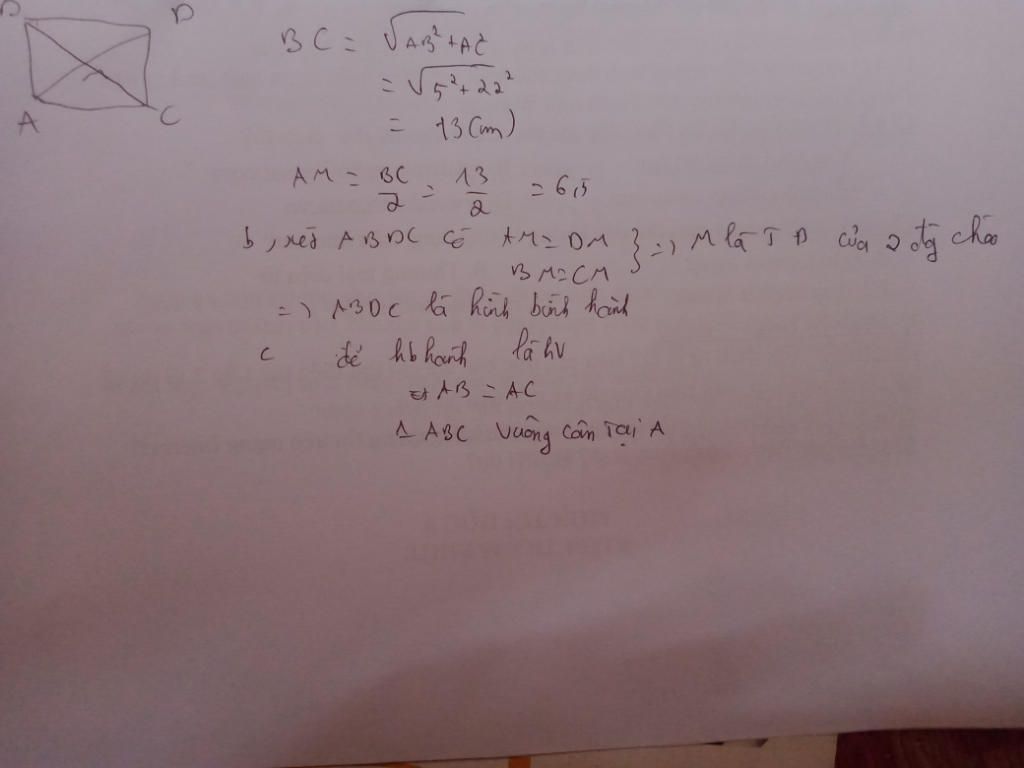 B D
A C
BC = √AB² + AC²
= √5² + 22²
= 13 (cm)
AM = BC/2 = 13/2 = 6,5
b, xét ABDC có AM = DM } => M là TĐ của 2 đg chéo
BM = CM
=> ABDC là hình bình hành
c để hbhành là hv
=> AB = AC
Δ ABC vuông cân Tại A